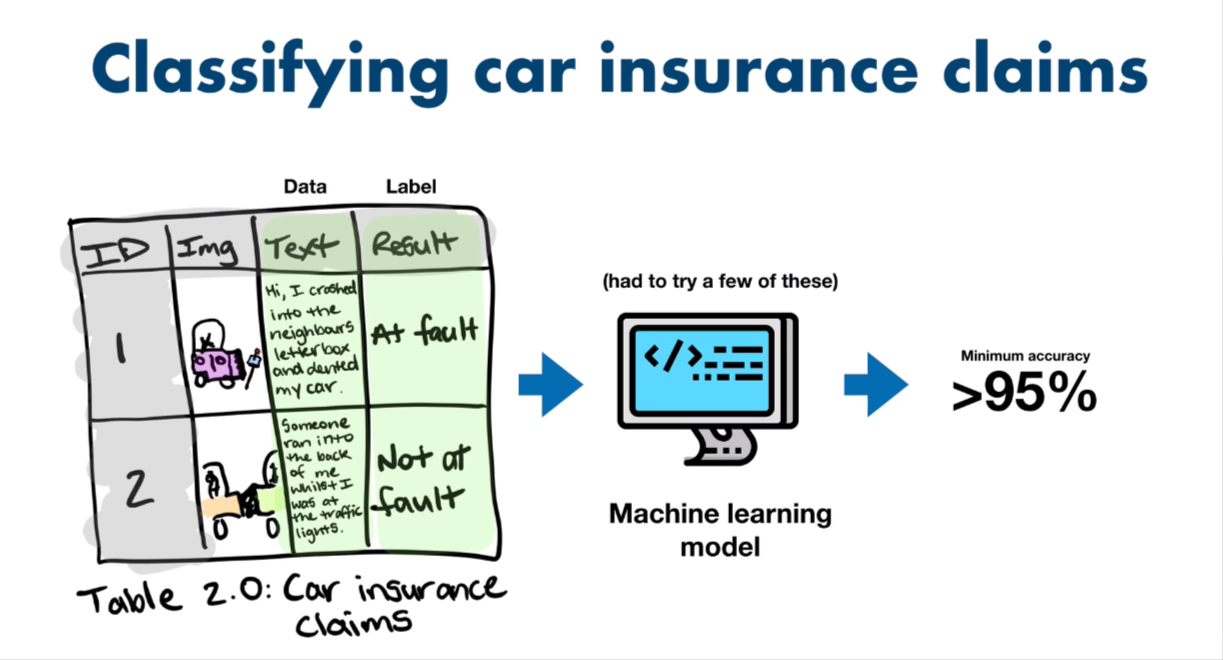 Classifying car insurance claims
Data
Label
ID
Img
Text
Result
1
Hi, I crashed
into the
neighbours
letterbox
and dented
my car.
At fault
2
Someone
ran into
the back
of me
whilst I
was at
the traffic
lights.
Not at
fault
Table 2.0: Car insurance
claims
(had to try a few of these)
</>
Machine learning
model
Minimum accuracy
>95%